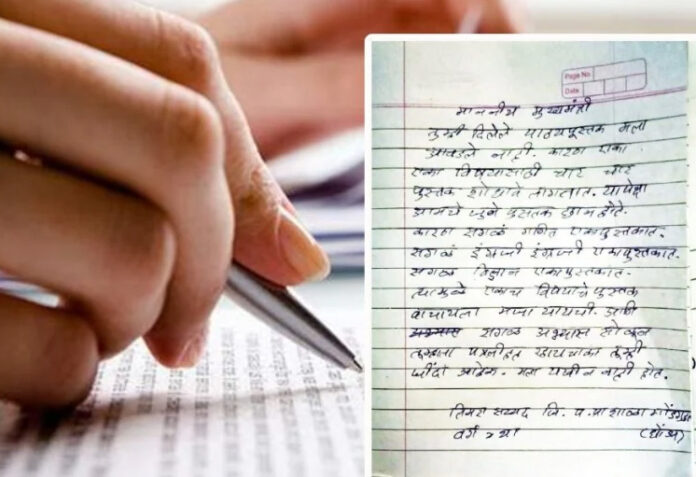 Page No.
Date
माननीय मुख्यमंत्री
तुम्ही दिलेले पाठ्यपुस्तक मला
आवडले नाही. कारण एका
एका विषयासाठी चार चार
पुस्तक शोधावे लागतात. यापेक्षा
आमचे जुने पुस्तक छान होते.
कारण सगळं गणित एकापुस्तकात.
सगळं इंग्रजी इंग्रजी एकापुस्तकात.
सगळं विज्ञान एकापुस्तकात.
त्यामुळे एकाच विषयाचे पुस्तक
वाचायला मजा यायची. आणि
अभ्यास सगळा अभ्यास
तुम्हाला
आहेत. मला नाही होत.
सय्यद जि. प. प्रा शाळा
वर्ग